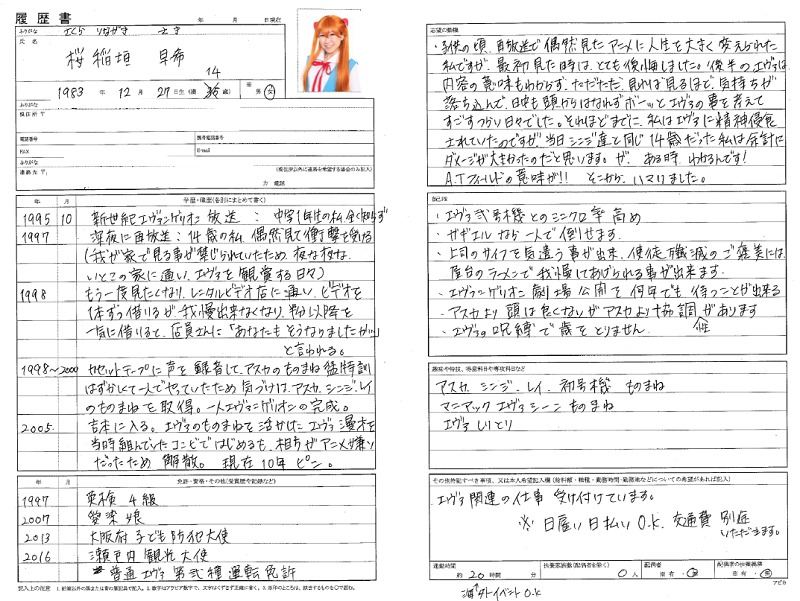 履歴書
年 月 日現在
ふりがな さくら いながき さき
氏名
桜 稲垣 早希
14
1983 年 12 月 27 日生(満 歳) 男・女
ふりがな
現住所 〒
電話番号
携帯電話番号
FAX
E-mail
ふりがな
(現住所以外に連絡を希望する場合のみ記入)
連絡先 〒
方 電話
年 月 学歴・職歴(各別にまとめて書く)
1995 10 新世紀エヴァンゲリオン放送:中学1年生の私、全く知らず
1997 深夜に再放送:14歳の私、偶然見て衝撃を受ける
(我が家で見る事が禁じられていたため、夜な夜な、
いとこの家に通い、エヴァを観賞する日々)
1998 もう一度見たくなり、レンタルビデオ店に通い、ビデオを
1本ずつ借りるが我慢出来なくなり、
一気に借りると、店員さんに「あなたもそうなりましたか…」
と言われる。
1998~2000 カセットテープに声を録音して、アスカのものまね猛特訓
はずかしくて一人でやっていたため気づけば、アスカ、シンジ、レイ
のものまねを取得。一人エヴァンゲリオンの完成。
2005 吉本に入る。エヴァのものまねを活かしたエヴァ漫才を
当時組んでいたコンビではじめるも、相方がアニメが嫌い
だったため 解散。現在10年ピン。
年 月 免許・資格・その他(受賞歴や記録など)
1997 英検4級
2007 愛染娘
2013 大阪府子ども防犯大使
2016 瀬戸内観光大使
*普通エヴァ第弐種運転免許
志望の動機
・子供の頃、再放送で偶然見たアニメに人生を大きく変えられた
私ですが、最初見た時は、とても後悔しました。後半のエヴァは
内容の意味もわからず、ただただ、見れば見るほど、気持ちが
落ち込んで、日中も頭からはなれずボーッとエヴァの事を考えて
すごすつらい日々でした。それほどまでに、私はエヴァに精神侵食
されていたのですが、当日シンジ達と同じ14歳だった私は余計に
ダメージが大きかったのだと思います。が、ある時、わかるんです!
A.Tフィールドの意味が!! そこから、ハマりました。
自己PR
・エヴァ弐号機とのシンクロ率高め
・ガギエルなら一人で倒せます。
・上司のサイフを気遣う事が出来、使徒殲滅のご褒美には、
屋台のラーメンで我慢してあげられる事が出来ます。
・エヴァンゲリオン劇場公開を何年でも待つことが出来る
・アスカより頭は良くないがアスカより協調性があります
・エヴァの呪縛で歳をとりません
趣味や特技、得意科目や専攻科目など
アスカ シンジ・レイ、初号機 ものまね
マニアックエヴァシーン ものまね
エヴァしりとり
その他特記すべき事項、又は本人希望記入欄(給料額・職種・勤務時間・勤務地などについての希望があれば記入)
エヴァ関連の仕事 受け付けています。
※日雇い日払いO.K. 交通費 別途
いただきます。
通勤時間
約 20 時間 分
扶養家族数(配偶者を除く)
0人
配偶者
有・無
配偶者の扶養義務
有・無
記入上の注意
アピカ
O.K